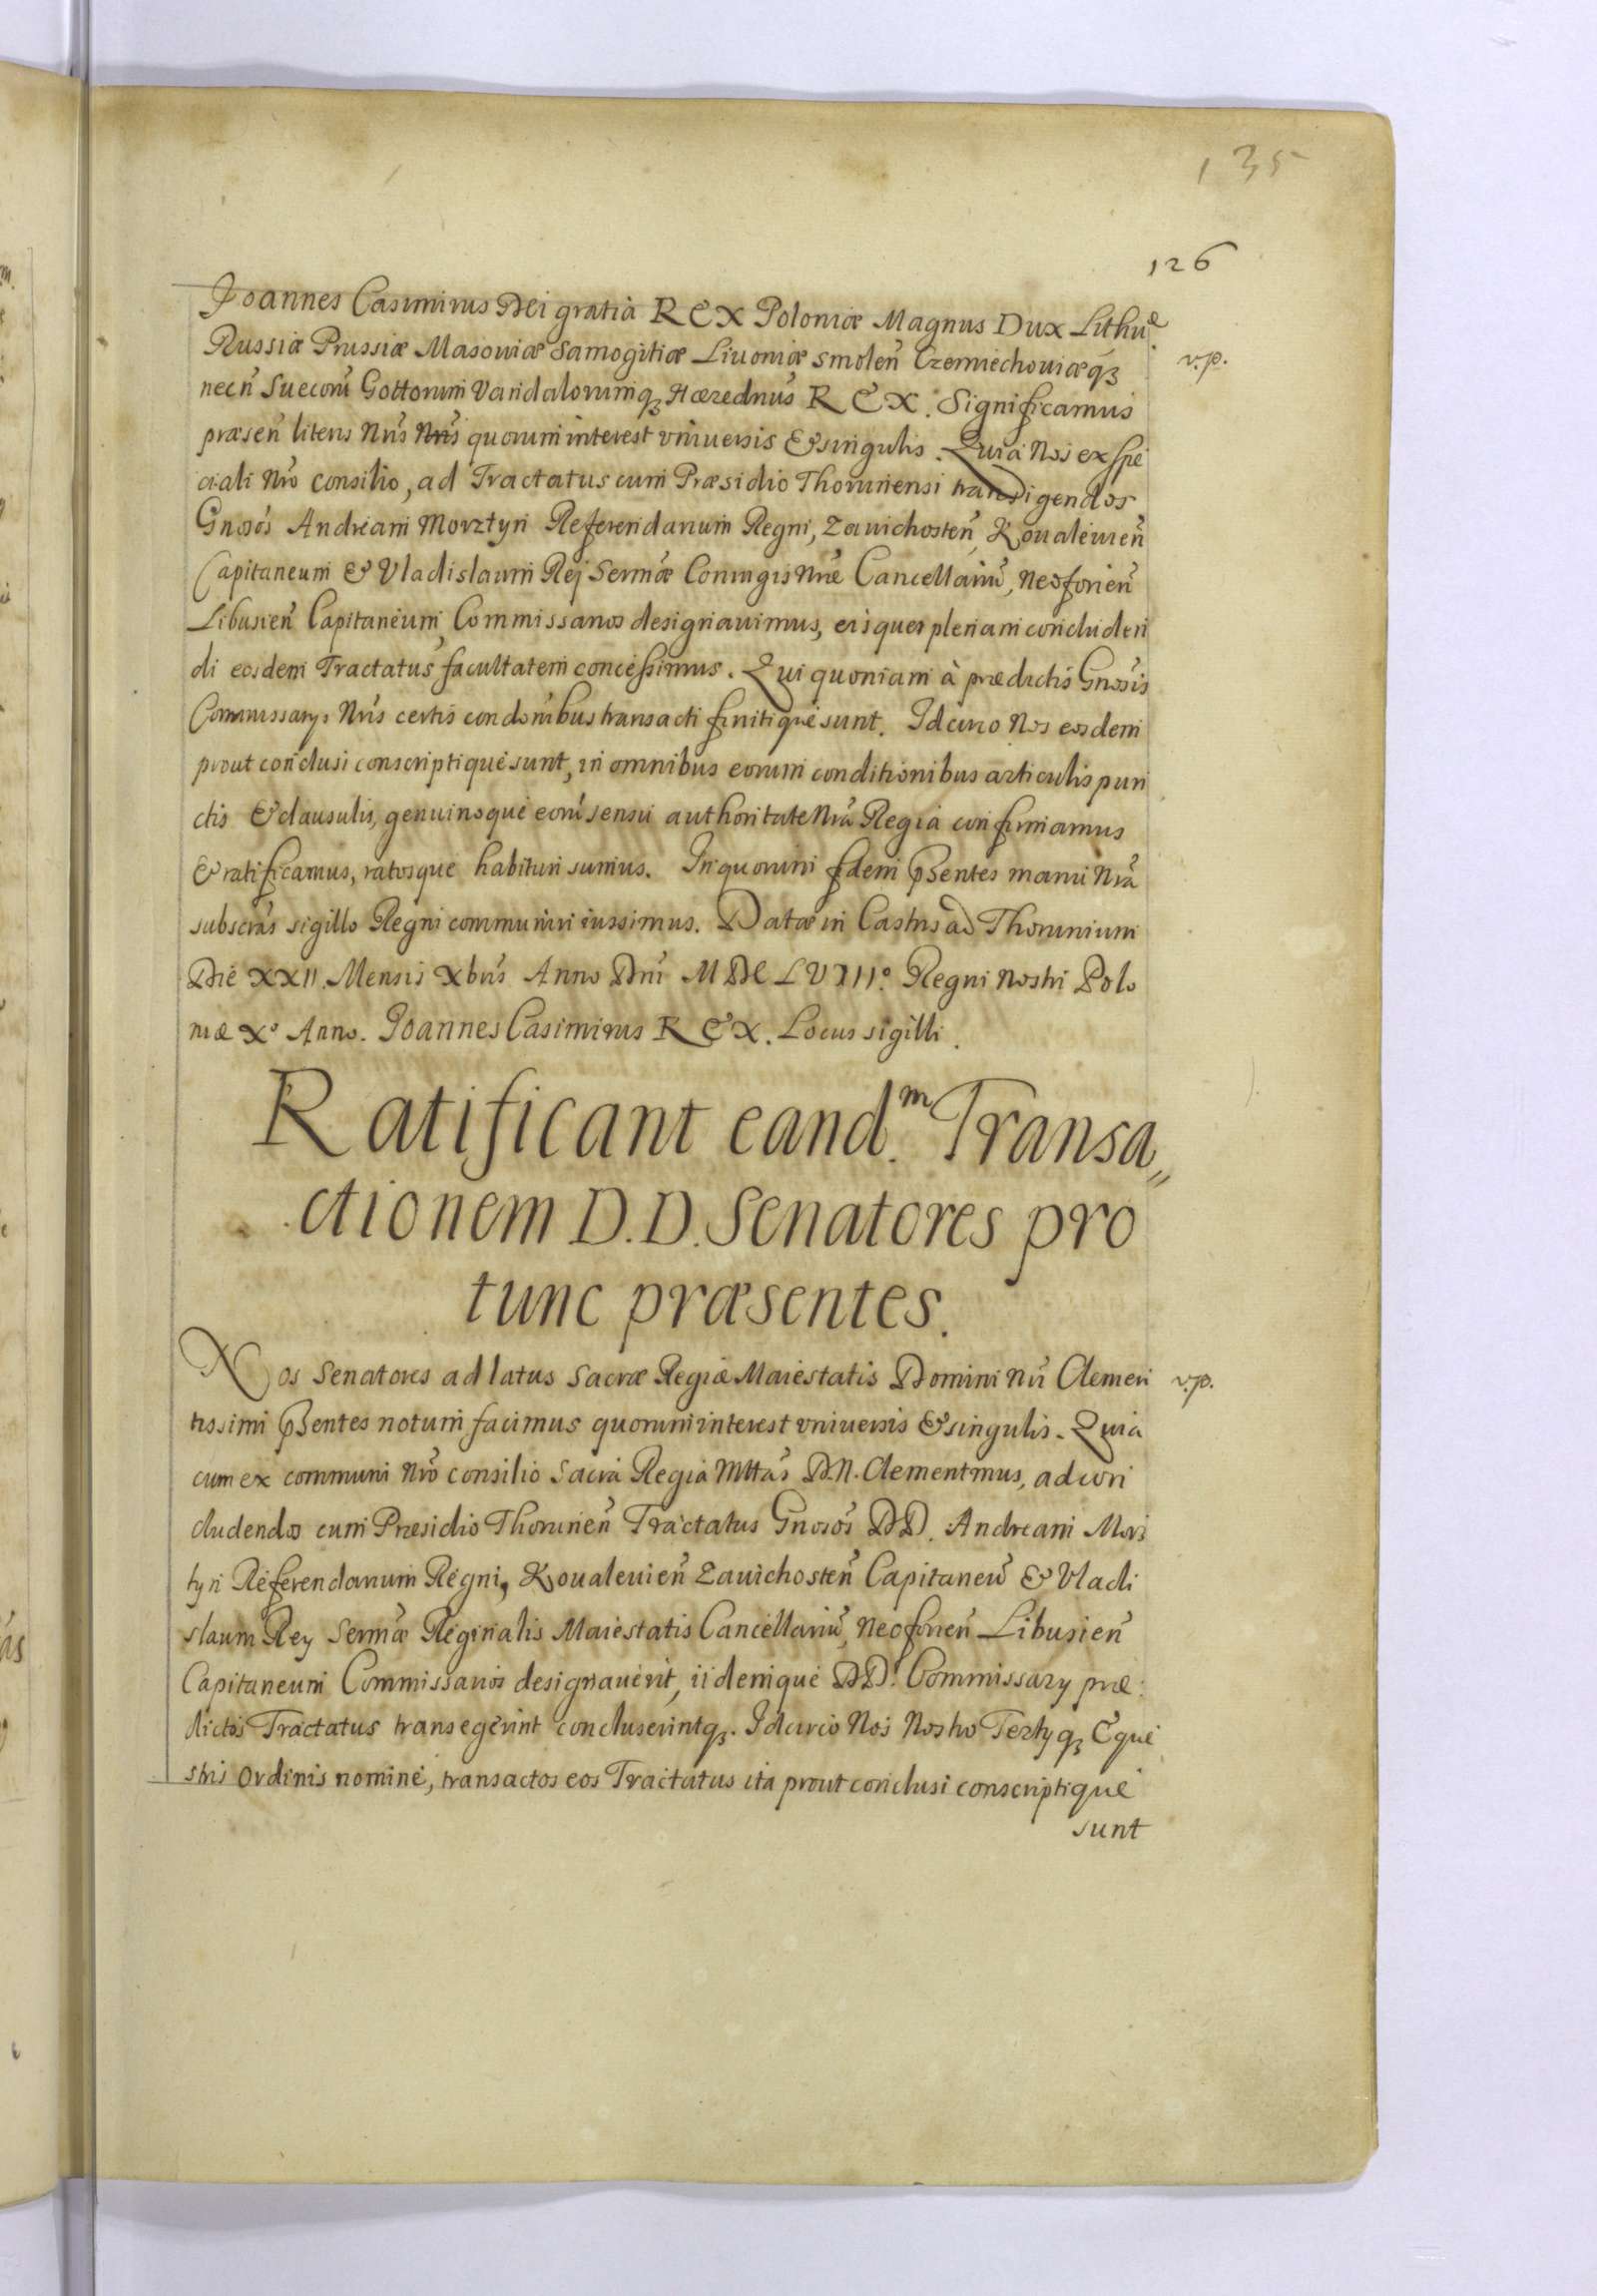 135
126
Joannes Casimirus Dei gratia REX Poloniæ Magnus Dux Lithuæ.
Russiæ Prussiæ Masoviæ Samogitiæ Livoniæ Smolen̄ Czerniechoviæq́ꝫ
v.p.
necn̄ Suecorū Gottorum Vandalorumqꝫ Hæredrius REX. Significamus
præsen̄ literis Nr̄is quorum interest vniuersis & singulis. Quia Nos ex spe
ciali Nrō consilio, ad Tractatus cum Præsidio Thoruniensi transigendos
Gnosōs Andream Morztyn Referendarium Regni, Zawichosten̄, Kovalewien̄
Capitaneum & Vladislaum Rej Sermǣ Coniugis Nrē Cancellariū, Neoforien̄
Libusien̄ Capitaneum, Commissarios designauimus, eisque plenam concluden
di eosdem Tractatus facultatem concessimus. Qui quoniam à prædictis Gnosīs
Commissarys Nrīs certis condonībus transacti finitique sunt. Idcirco Nos eosdem
prout conclusi conscriptique sunt, in omnibus eorum conditionibus articulis pun
ctis & clausulis, genuinoque eorū sensu authoritate Nrā Regia confirmamus
& ratificamus, ratosque habituri sumus. In quorum fidem pꝫentes manu Nrā
subscrās sigillo Regni communiri iussimus. Datæ in Castris ad Thorunium
Die XXII. Mensis Xbrīs Anno Dnī MDCLVIIIº. Regni Nostri Polo
niæ Xº Anno. Joannes Casimirus REX. Locus sigilli.
Ratificant eand.m Transa„
ctionem D.D. Senatores pro
tunc præsentes.
Nos Senatores ad latus Sacræ Regiæ Maiestatis Domini Nrī Clemen
v.p.
tissimi pꝫentes notum facimus quorum interest vniuersis & singulis. Quia
cum ex communi Nrō consilio Sacra Regia Mttās D.N. Clementmus, ad con
cludendos cum Præsidio Thorunien̄ Tractatus Gnosōs DD. Andream Morz
tyn Referendarium Regni, Kovalevien̄ Zavichosten̄ Capitaneū & Vladi
slaum Rey Sermǣ Reginalis Maiestatis Cancellariū, Neoforien̄ Libusien̄
Capitaneum Commissarios designauerit, iidemque DD. Commissary præ
dictos Tractatus transegerint concluserintqꝫ. Idcirco Nos Nostro Tertyqꝫ Eque
stris Ordinis nomine, transactos eos Tractatus ita prout conclusi conscriptique
sunt